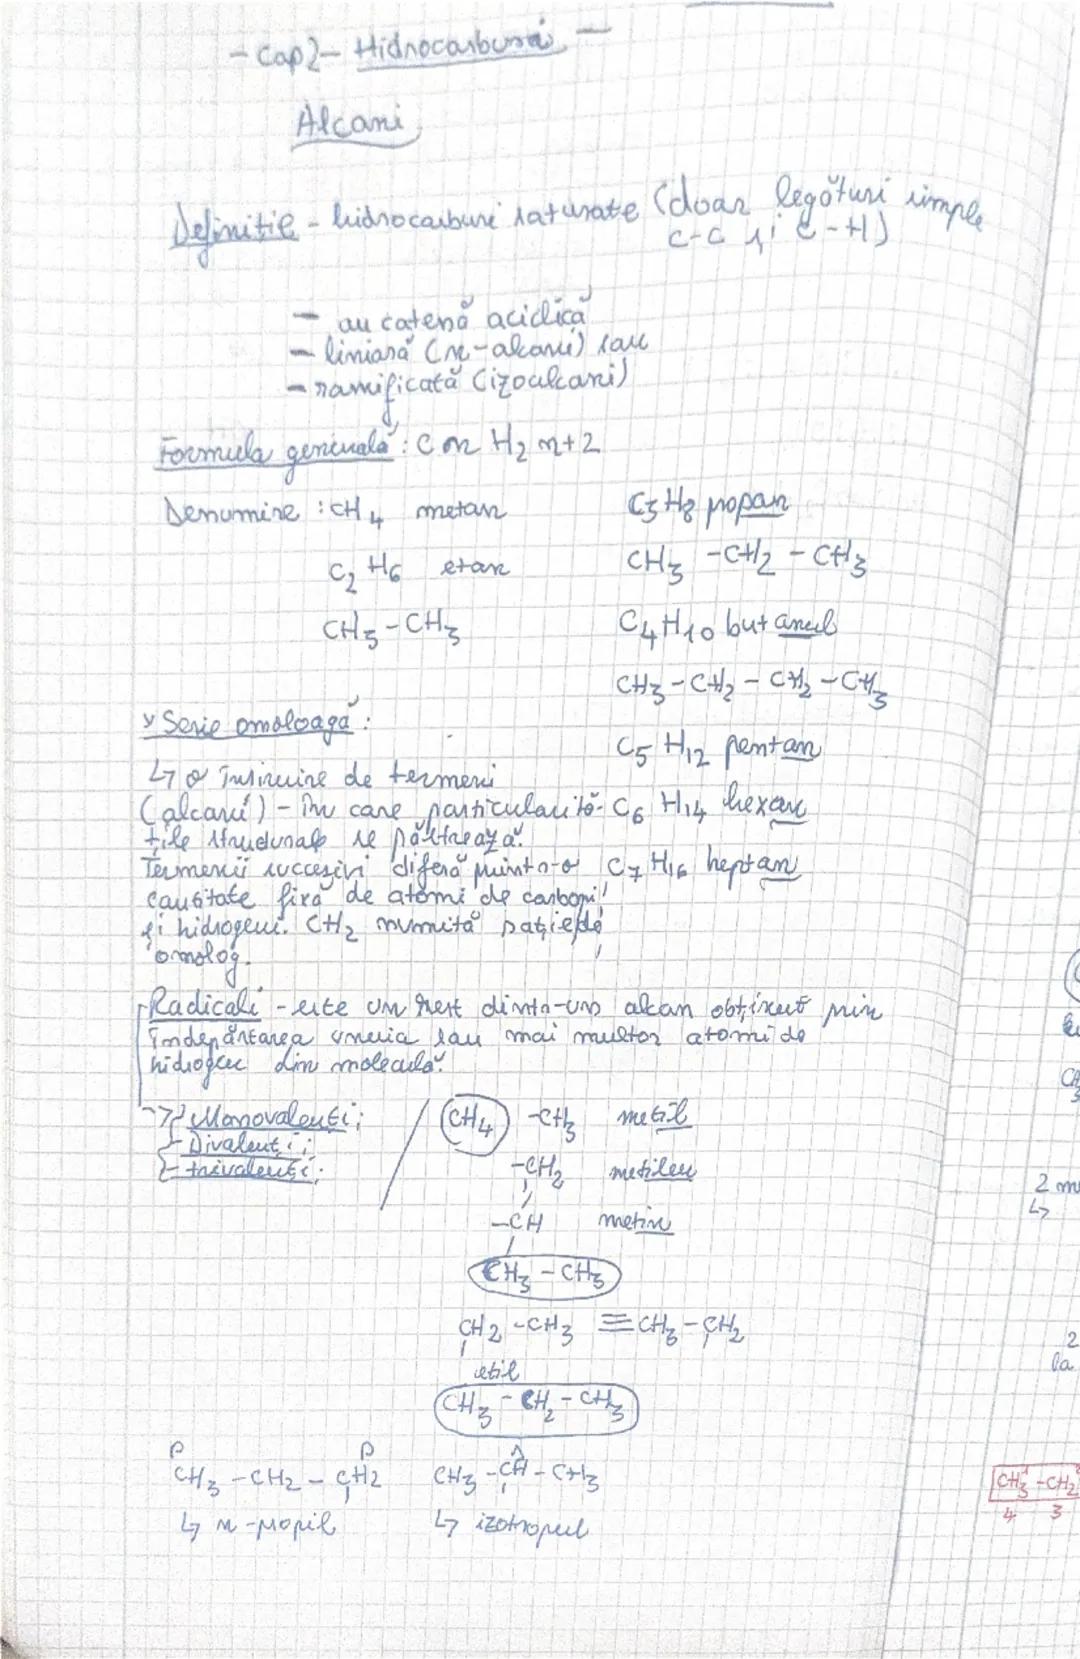 - Cap 2 - Hidrocarburi -
Alcani
Definiție - hidrocarburi saturate (doar legături simple
C-C și C-H)
- au catenă aciclică
- liniară (n-alcani) sau
- ramificată (izoalcani)
Formula generală: Cn H2n+2
Denumire: CH4 metan
C2H6 etan
CH3-CH3
C3H8 propan
CH3-CH2-CH3
C4H10 butanul
CH3-CH2-CH2-CH3
C5H12 pentan
C6H14 hexan
C7H16 heptan
Serie omoloagă:
↳ o înșiruire de termeni
(alcani) - în care particularită-
țile structurale se păstrează.
Termenii succesivi diferă printr-o
cantitate fixă de atomi de carboni
și hidrogeni. CH2 numită
omolog.
Radicali - este un rest dintr-un alcan obținut prin
îndepărtarea unuia sau mai multor atomi de
hidrogen din moleculă.
→ - Monovalenți;
- Divalenți;
- trivalenți;
CH4 -CH3 metil
-CH2 metilen
-CH metin
CH3-CH3
CH2-CH3 ≡ CH3-CH2
etil
CH3-CH2-CH3
P P
CH3-CH2-CH2
↳ n-propil
CH3-CH-CH3
↳ izopropil
2
la
CH3-CH2
4 3